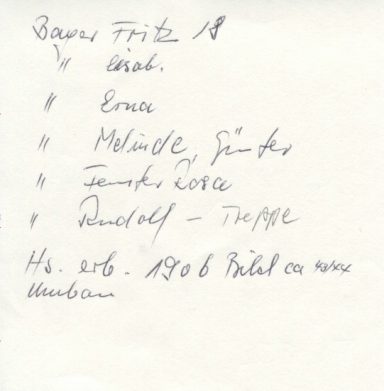 Bayer Fritz 18
" Elisab.
" Erna
" Melinde, Günter
" Fenster Rosa
" Rudolf - Treppe
Hs. erb. 1906 Bild ca
Umbau